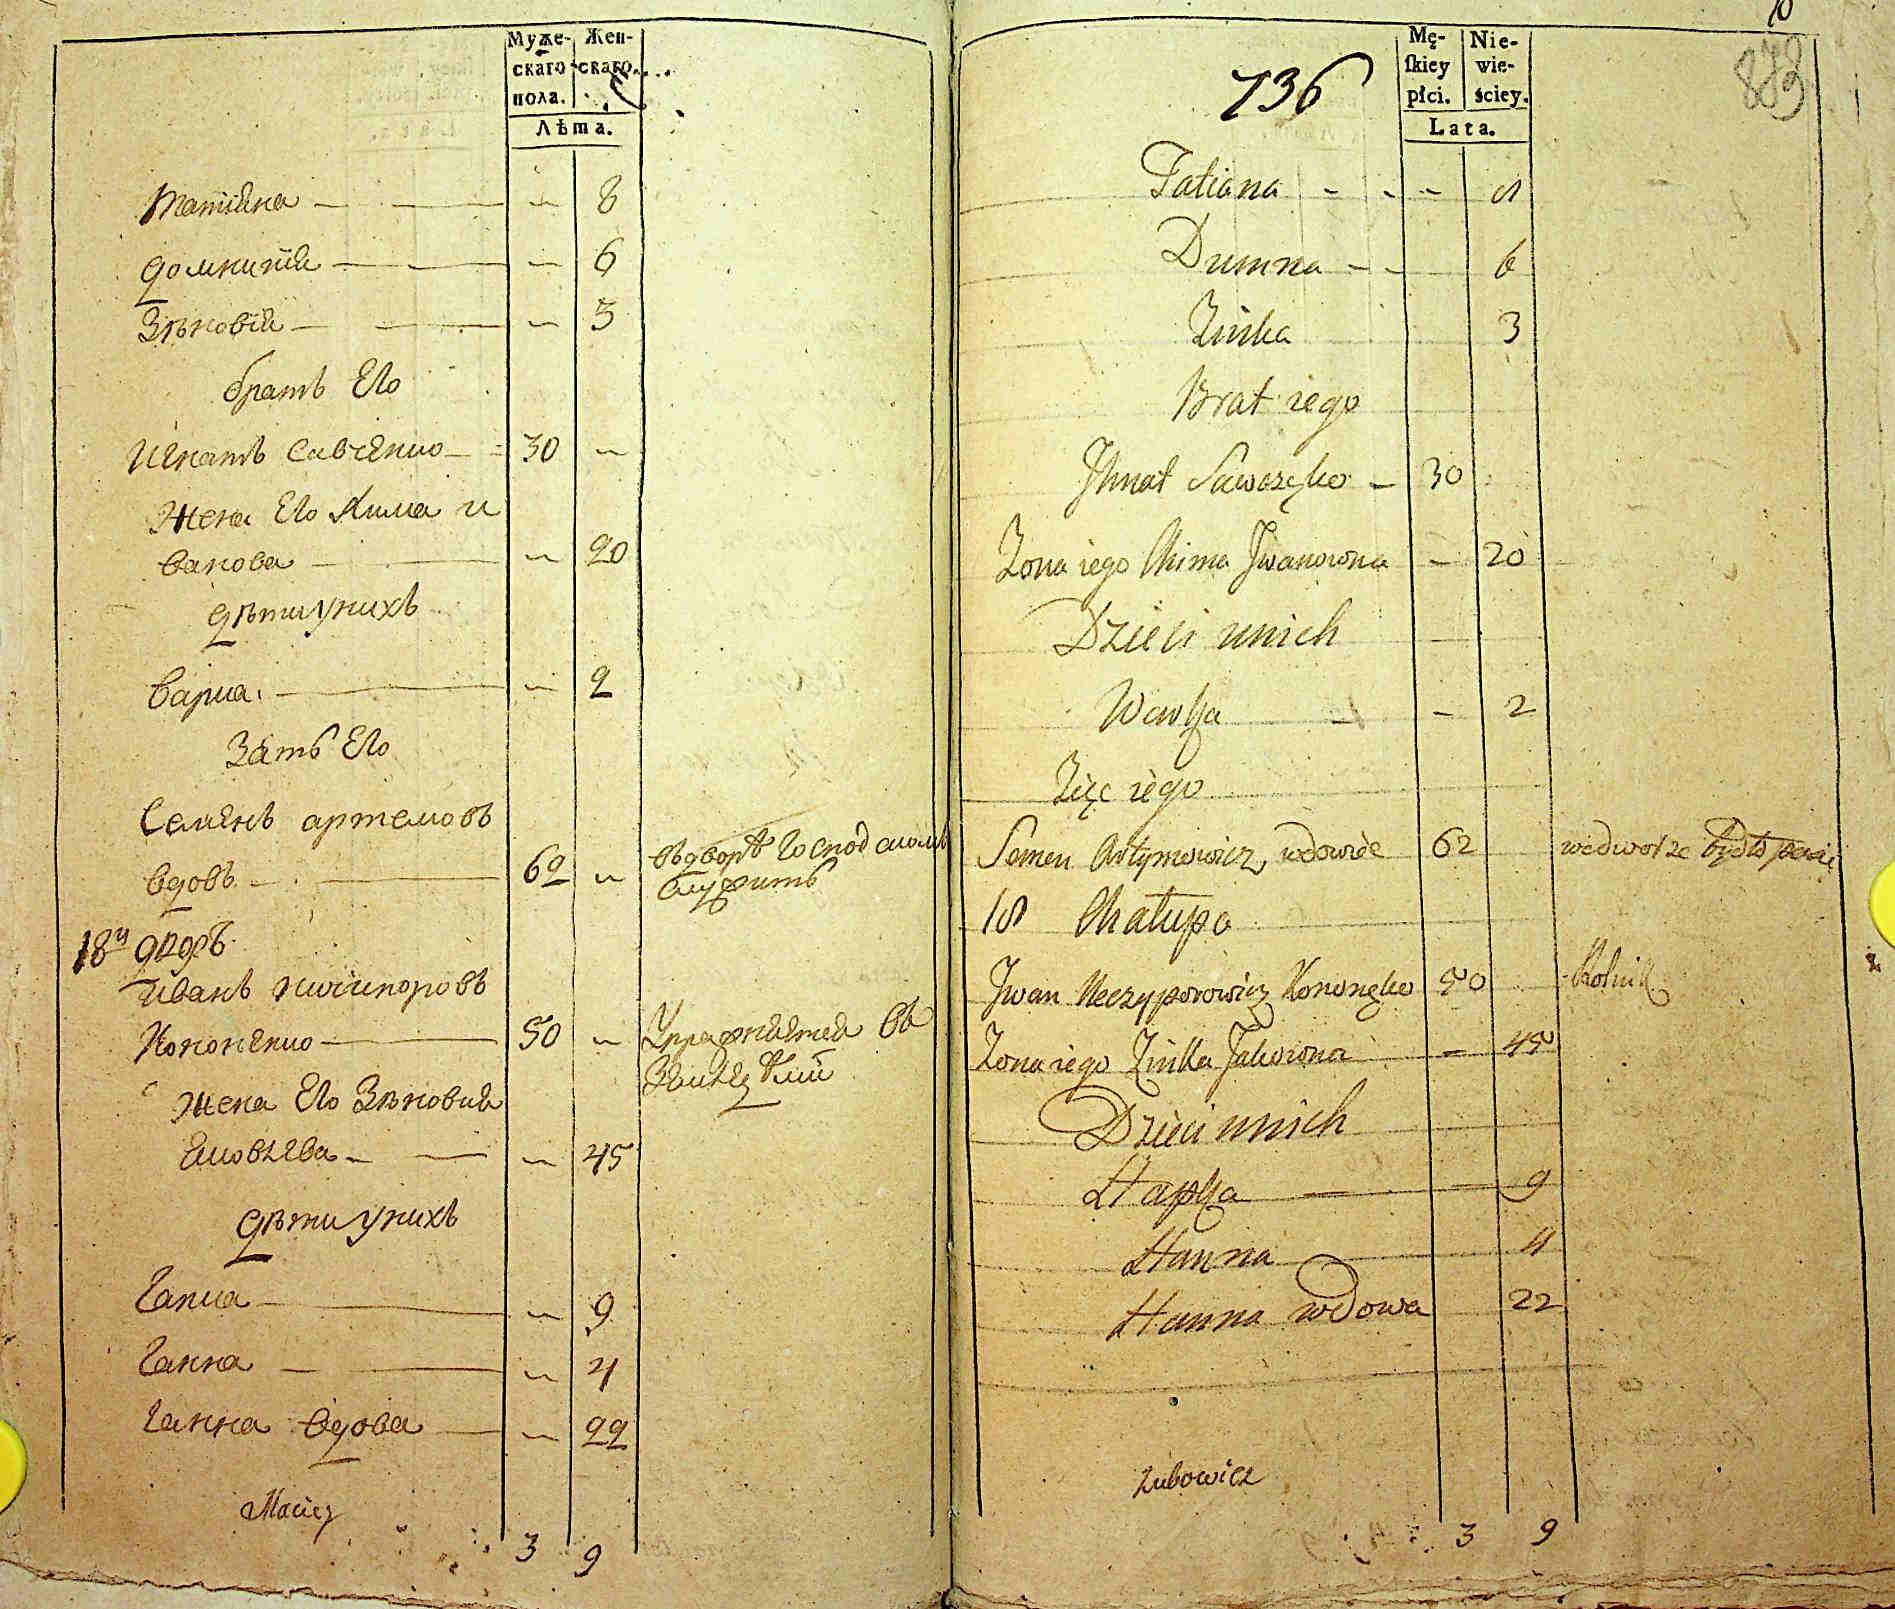 Муже- Жен-
скаго скаго
пола.
Лѣта.
татіяна — — 8
домникия — — 6
Зѣновия — — 3
братъ Его
Игнатъ Савченко — 30 —
Жена Его Хима и
ванова — — 20
дѣти унихъ
Варка — — 2
Зять Его
Семенъ артемовъ
вдовъ — 62 — въдворѣ Господскомъ
служитъ
18й дворъ
Иванъ ничипоровъ
Кононенко — 50 — Упражняется въ
Жена Его Зѣновия
Яковлева — — 45
дѣти унихъ
Гапка — — 9
Ганна — — 4
Ганна вдова — — 22
Maciey
3 9
10
873
736
Mę- Nie-
skiey wie-
płci. ściey.
Lata.
Tatiana - - - 8
Dumna - - 6
Zinka 3
Brat iego
Ihnat Sawczęko — 30
Zona iego Chima Jwanowna — 20
Dzieci unich
Warka — 2
Zięc iego
Semen Artymowicz, wdowiec 62 wedworze bydło pasie
18 Chałupa
Jwan Neczyporowicz Kononęko 50 Rolnik
Zona iego Zinka Jakowna — 45
Dzieci unich
Hapka — 9
Hanna 4
Hanna wdowa 22
Zubowicz
3 9